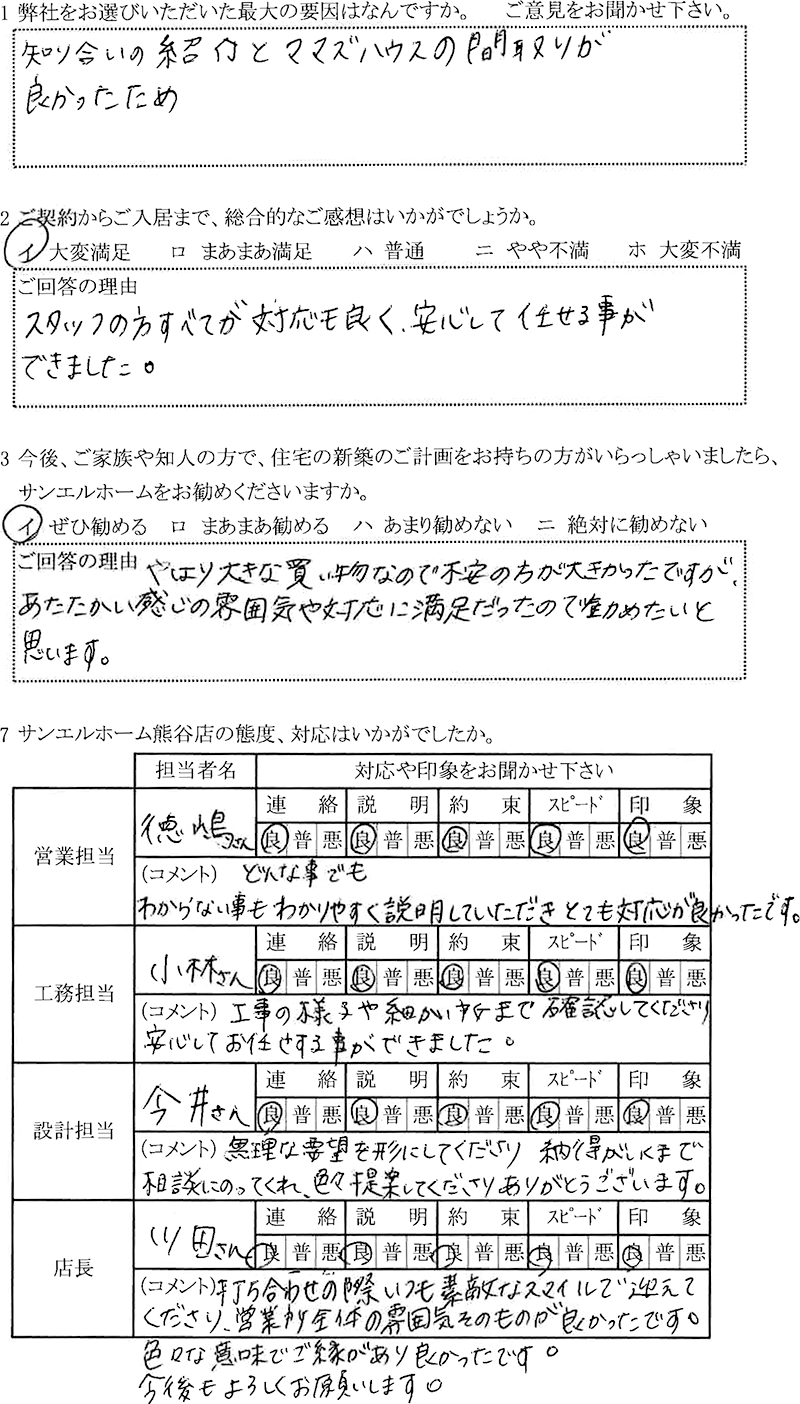 1 弊社をお選びいただいた最大の要因はなんですか。　ご意見をお聞かせ下さい。
知り合いの紹介とママズハウスの間取りが
良かったため
2 ご契約からご入居まで、総合的なご感想はいかがでしょうか。
イ 大変満足　ロ まあまあ満足　ハ 普通　ニ やや不満　ホ 大変不満
ご回答の理由
スタッフの方すべてが対応も良く、安心して任せる事が
できました。
3 今後、ご家族や知人の方で、住宅の新築のご計画をお持ちの方がいらっしゃいましたら、
サンエルホームをお勧めくださいますか。
イ ぜひ勧める　ロ まあまあ勧める　ハ あまり勧めない　ニ 絶対に勧めない
ご回答の理由 やはり大きな買い物なので不安の方が大きかったですが、
あたたかい感じの雰囲気や対応に満足だったので勧めたいと
思います。
7 サンエルホーム熊谷店の態度、対応はいかがでしたか。
担当者名　対応や印象をお聞かせ下さい
営業担当　徳嶋さん
連絡　説明　約束　スピード　印象
良 普 悪　良 普 悪　良 普 悪　良 普 悪　良 普 悪
(コメント) どんな事でも
わからない事もわかりやすく説明していただきとても対応が良かったです。
工務担当　小林さん
連絡　説明　約束　スピード　印象
良 普 悪　良 普 悪　良 普 悪　良 普 悪　良 普 悪
(コメント) 工事の様子や細かい所まで確認してくださり
安心してお任せする事ができました。
設計担当　今井さん
連絡　説明　約束　スピード　印象
良 普 悪　良 普 悪　良 普 悪　良 普 悪　良 普 悪
(コメント) 無理な要望を形にしてくださり 納得がいくまで
相談にのってくれ、色々提案してくださりありがとうございます。
店長　川田さん
連絡　説明　約束　スピード　印象
良 普 悪　良 普 悪　良 普 悪　良 普 悪　良 普 悪
(コメント) 打ち合わせの際いつも素敵なスマイルで迎えて
くださり、営業所全体の雰囲気そのものが良かったです。
色々な意味でご縁があり良かったです。
今後もよろしくお願いします。